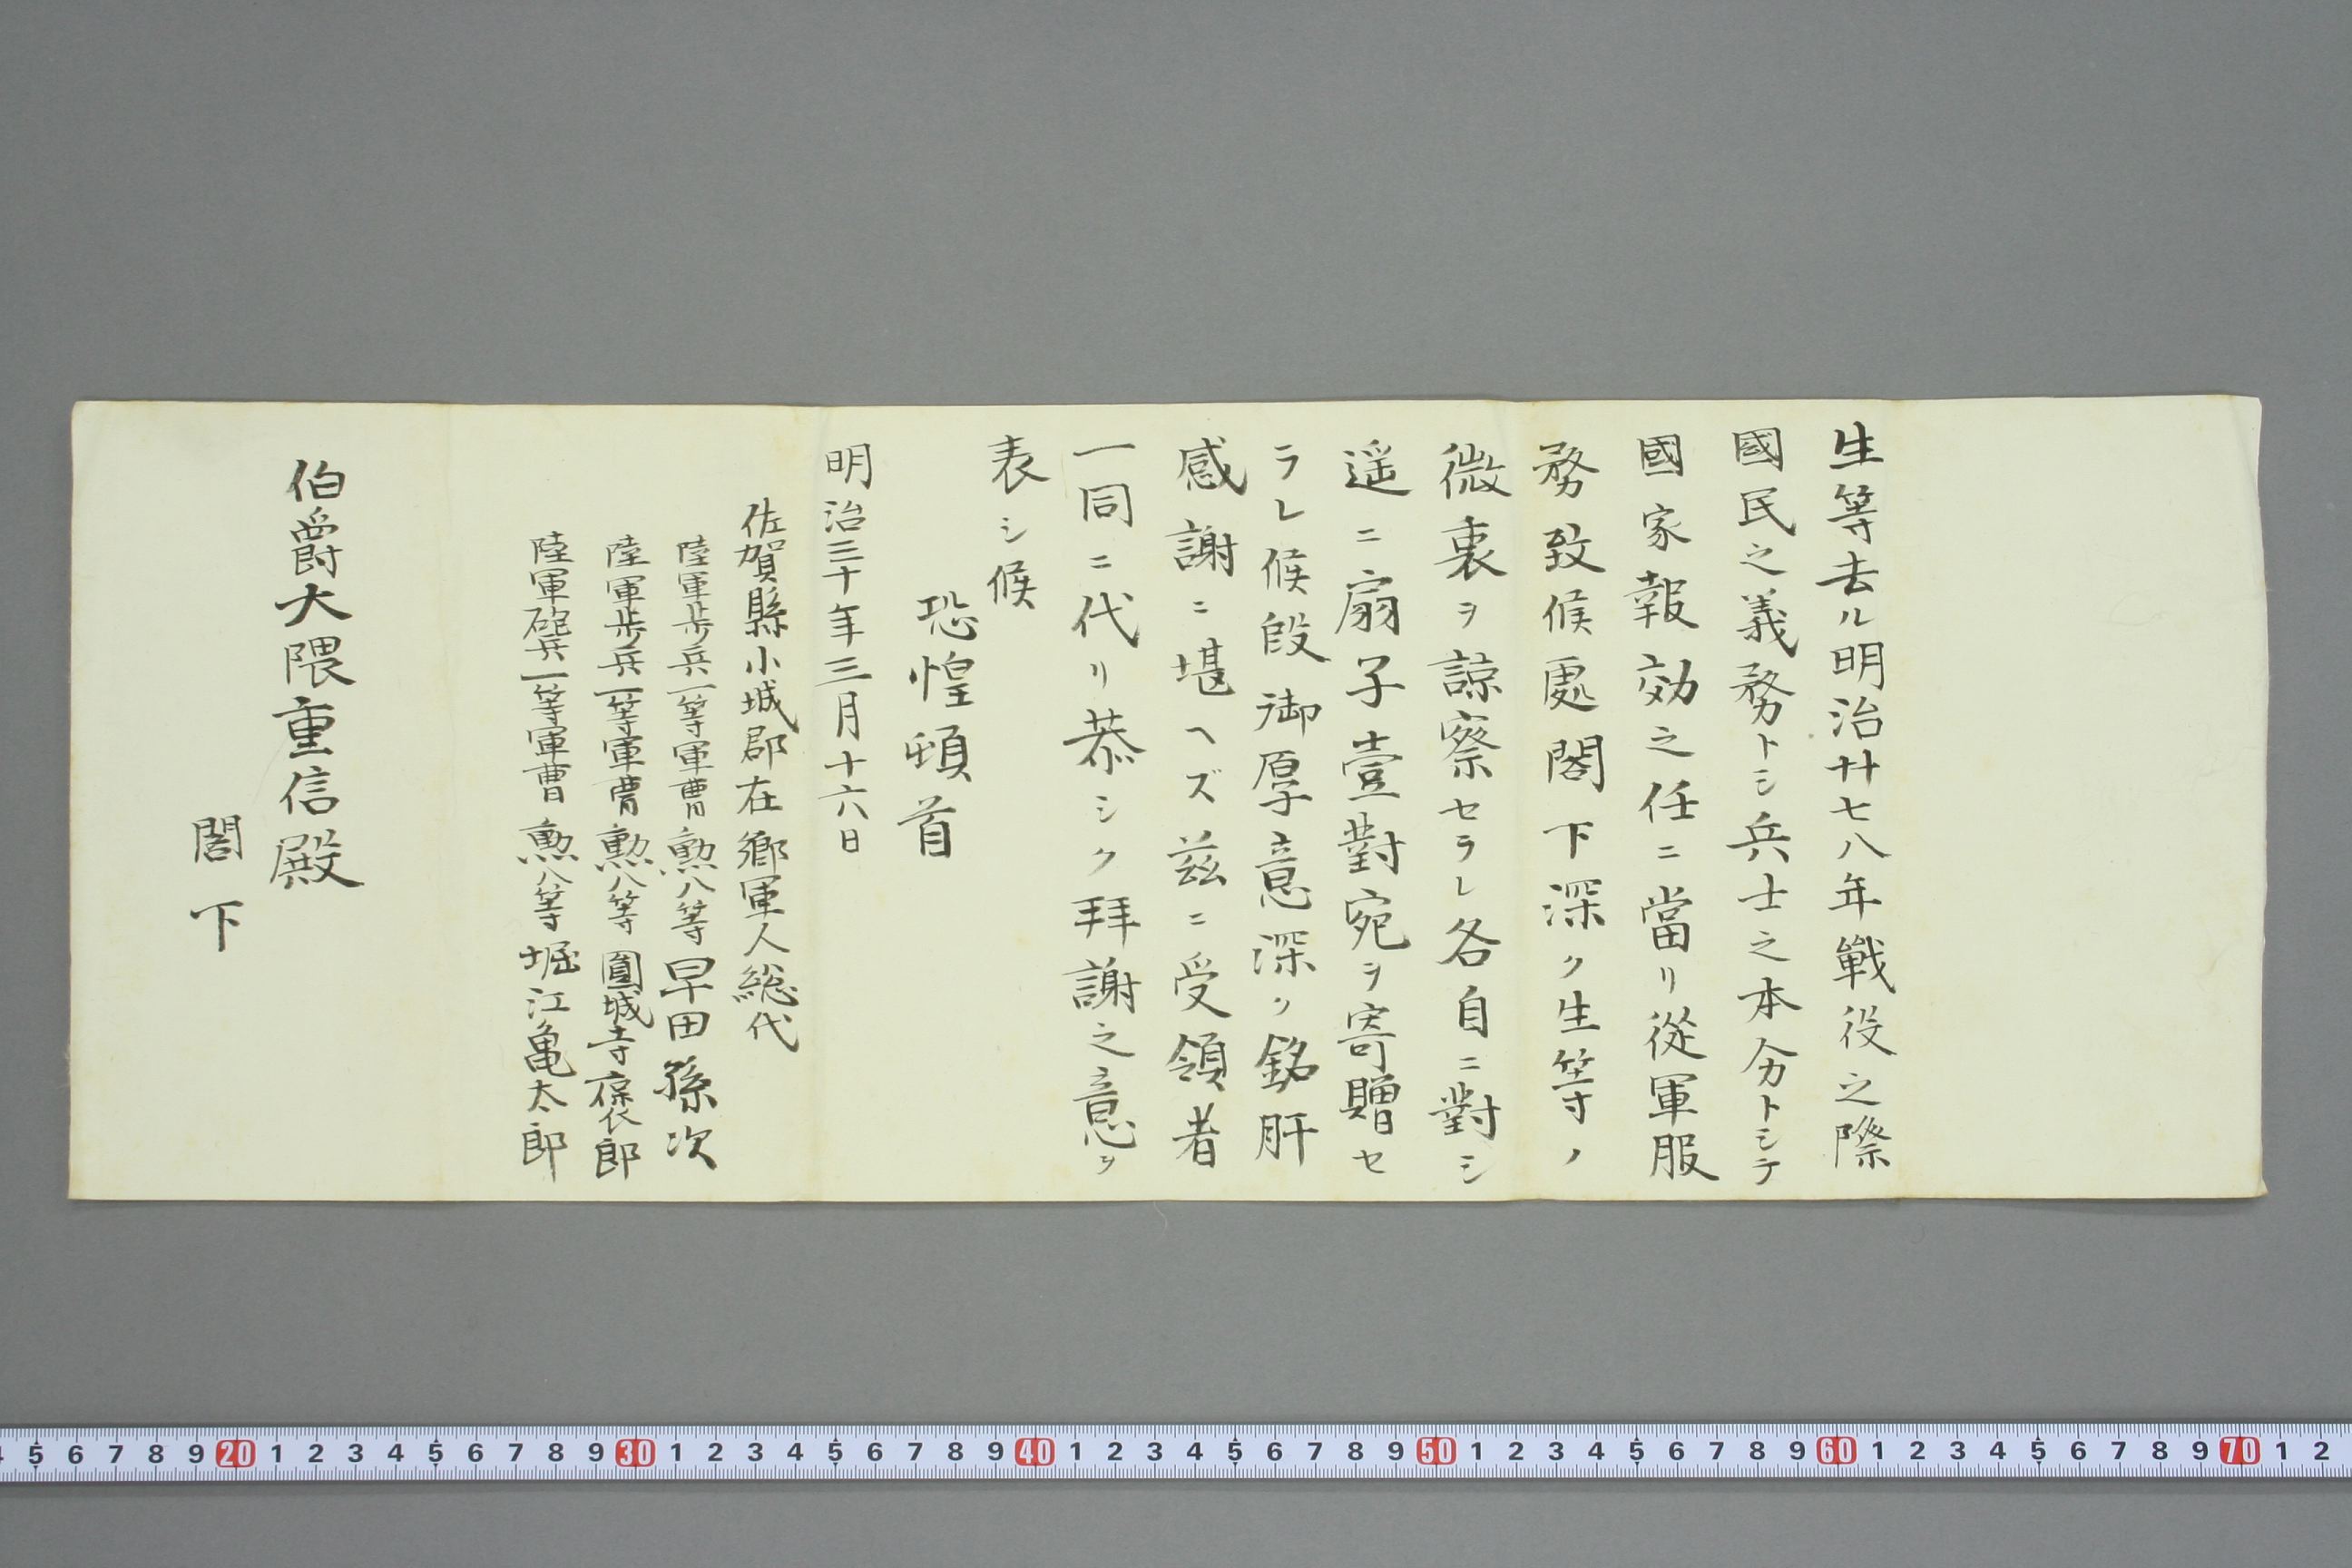 生等去ル明治廿七八年戦役之際
國民之義務トシ兵士之本分トシテ
國家報効之任ニ當リ從軍服
務致候處閣下深ク生等ノ
微衷ヲ諒察セラレ各自ニ對シ
遥ニ扇子壹對宛ヲ寄贈セ
ラレ候段御厚意深ク銘肝
感謝ニ堪ヘズ茲ニ受領者
一同ニ代リ恭シク拜謝之意ヲ
表シ候
恐惶頓首
明治三十年三月十六日
佐賀縣小城郡在郷軍人総代
陸軍歩兵一等軍曹勲八等早田孫次
陸軍歩兵一等軍曹勲八等圓城寺褒郎
陸軍砲兵一等軍曹勲八等堀江亀太郎
伯爵大隈重信殿
閣下
5 6 7 8 9 20 1 2 3 4 5 6 7 8 9 30 1 2 3 4 5 6 7 8 9 40 1 2 3 4 5 6 7 8 9 50 1 2 3 4 5 6 7 8 9 60 1 2 3 4 5 6 7 8 9 70 1 2